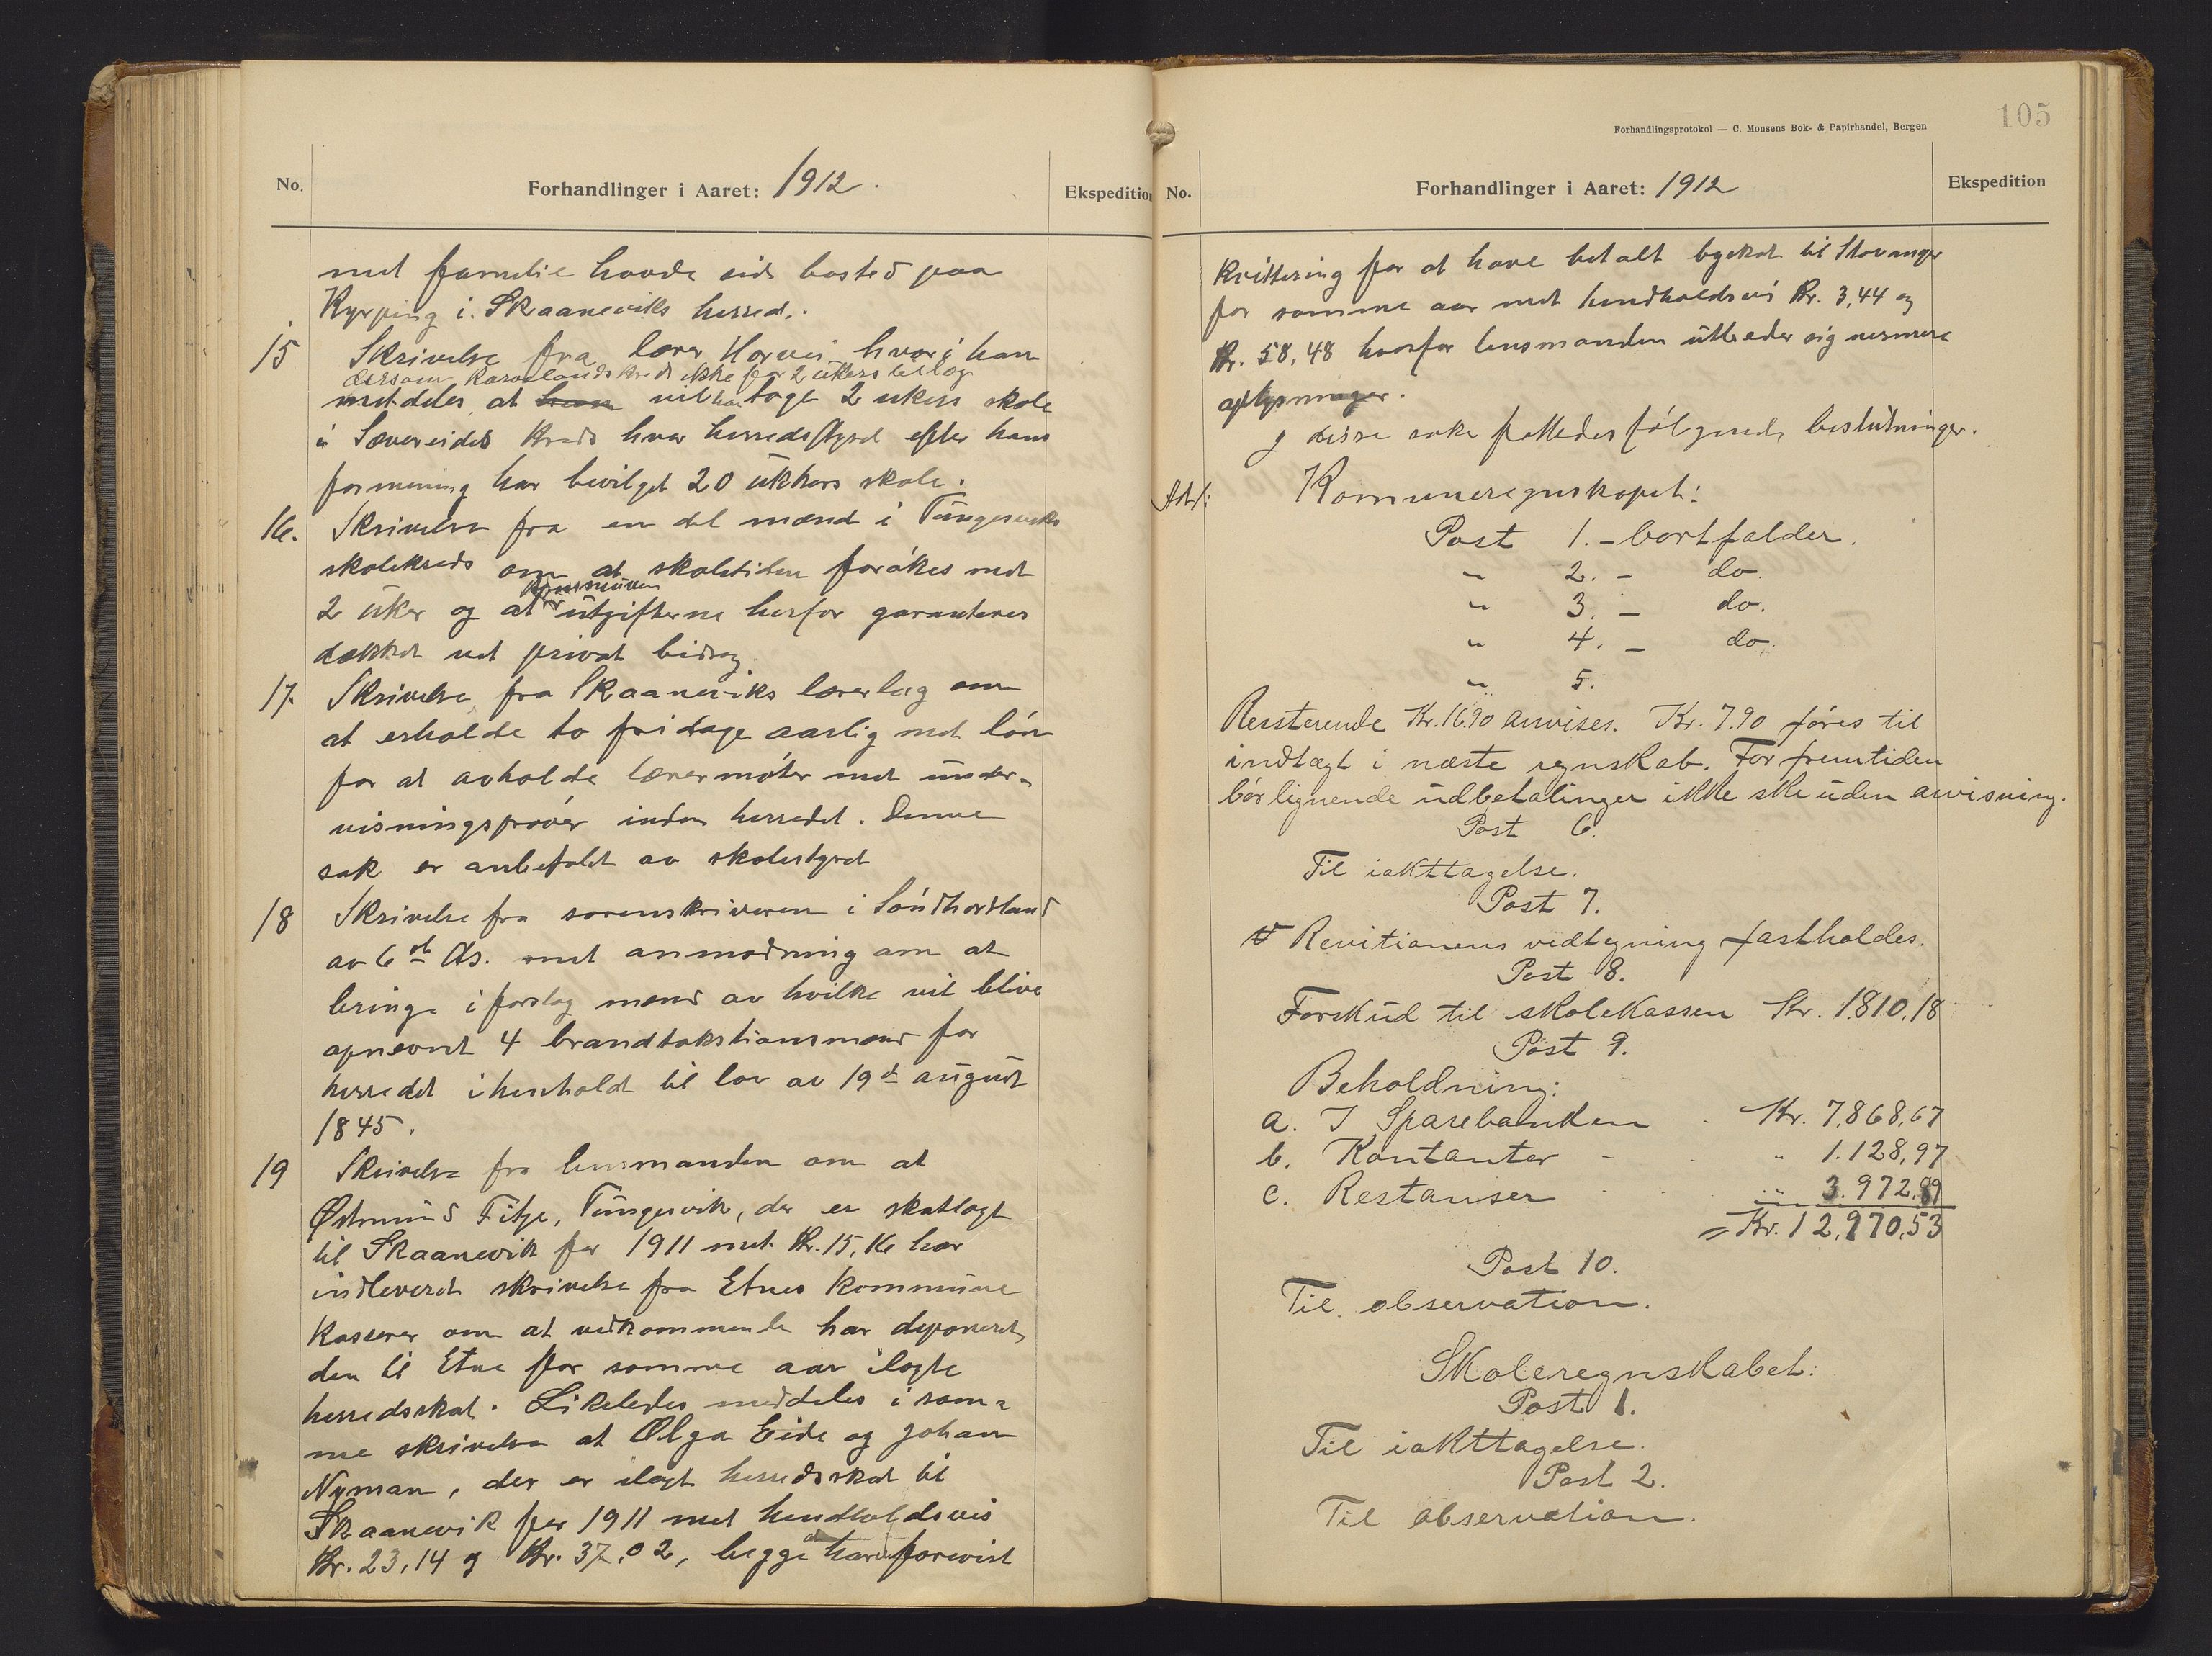 No.
Forhandlinger i Aaret: 1912.
Ekspedition
met familie havde sid bosted paa
Kyrping i Skaaneviks herred.
15
Skrivelse fra lærer Horvei hvori han
dersom kreds ikke får 2 ukers tillæg
meddeles at han vil han tage 2 ukers skole
i Sævereides kreds hvor herredsstyret efter hans
formening har bevilget 20 ukkers skole.
16.
Skrivelse fra en del mænd i Tungesviks
skolekreds om at skoletiden forøkes met
kommunen
2 uker og at utgifterne herfor garanteres
dækket ved privat bidrag.
17.
Skrivelse fra Skaaneviks lærerlag om
at erholde to fridage aarlig met løn
for at avholde lærermøter met under-
visningsprøver inden herredet. Denne
sak er anbefalet av skolestyret
18
Skrivelse fra sorenskriveren i Søndhordland
av 6te ds. met anmodning om at
bringe i forslag mænd av hvilke vil blive
opnævnt 4 brandtakstionsmænd for
herredet i henhold til lov av 19de august
1845.
19
Skrivelse fra lensmanden om at
Østmund Fitje, Tungesvik, der er skatlagt
til Skaanevik for 1911 met Kr. 15,16 har
indleveret skrivelse fra Etnes kommune
kasserer om at vedkommende har deponeret
den til Etne for samme aar ilagte
herredsskat. Likeledes meddeles i sam-
me skrivelse at Olga Eide og Johan
Nyman, der er ilagt herredsskat til
Skaanevik for 1911 met hendholdsvis
Kr. 23,14 og Kr. 37,02, begge har forevist
105
Forhandlingsprotokol — C. Monsens Bok- & Papirhandel, Bergen
No.
Forhandlinger i Aaret: 1912
Ekspedition
Kvittering for at have betalt byskat til Stavanger
for samme aar met hendholdsvis Kr. 3,44 og
Kr. 58,48 hvorfor lensmanden utbeder sig nermere
oplysninger.
I disse saker fattedes følgende beslutninger.
Kommuneregnskapet:
Post 1. - bortfalder.
" 2. - do.
" 3. - do.
" 4. - do.
" 5.
Ressterende Kr. 16.90 anvises. Kr. 7.90 føres til
indtægt i næste regnskab. For fremtiden
bør lignende udbetalinger ikke ske uden anvisning.
Post 6.
Til iakttagelse.
Post 7.
Revitionens vedtegning fastholdes.
Post 8.
Forskud til skolekassen Kr. 1810,18
Post 9.
Beholdning:
a. I Sparebanken Kr. 7,868,67
b. Kontanter - " 1.128,97
c. Restanser " 3.972,89
= Kr. 12,970,53
Post 10.
Til observation.
Skoleregnskabet:
Post 1.
Til iakttagelse.
Post 2.
Til observation.